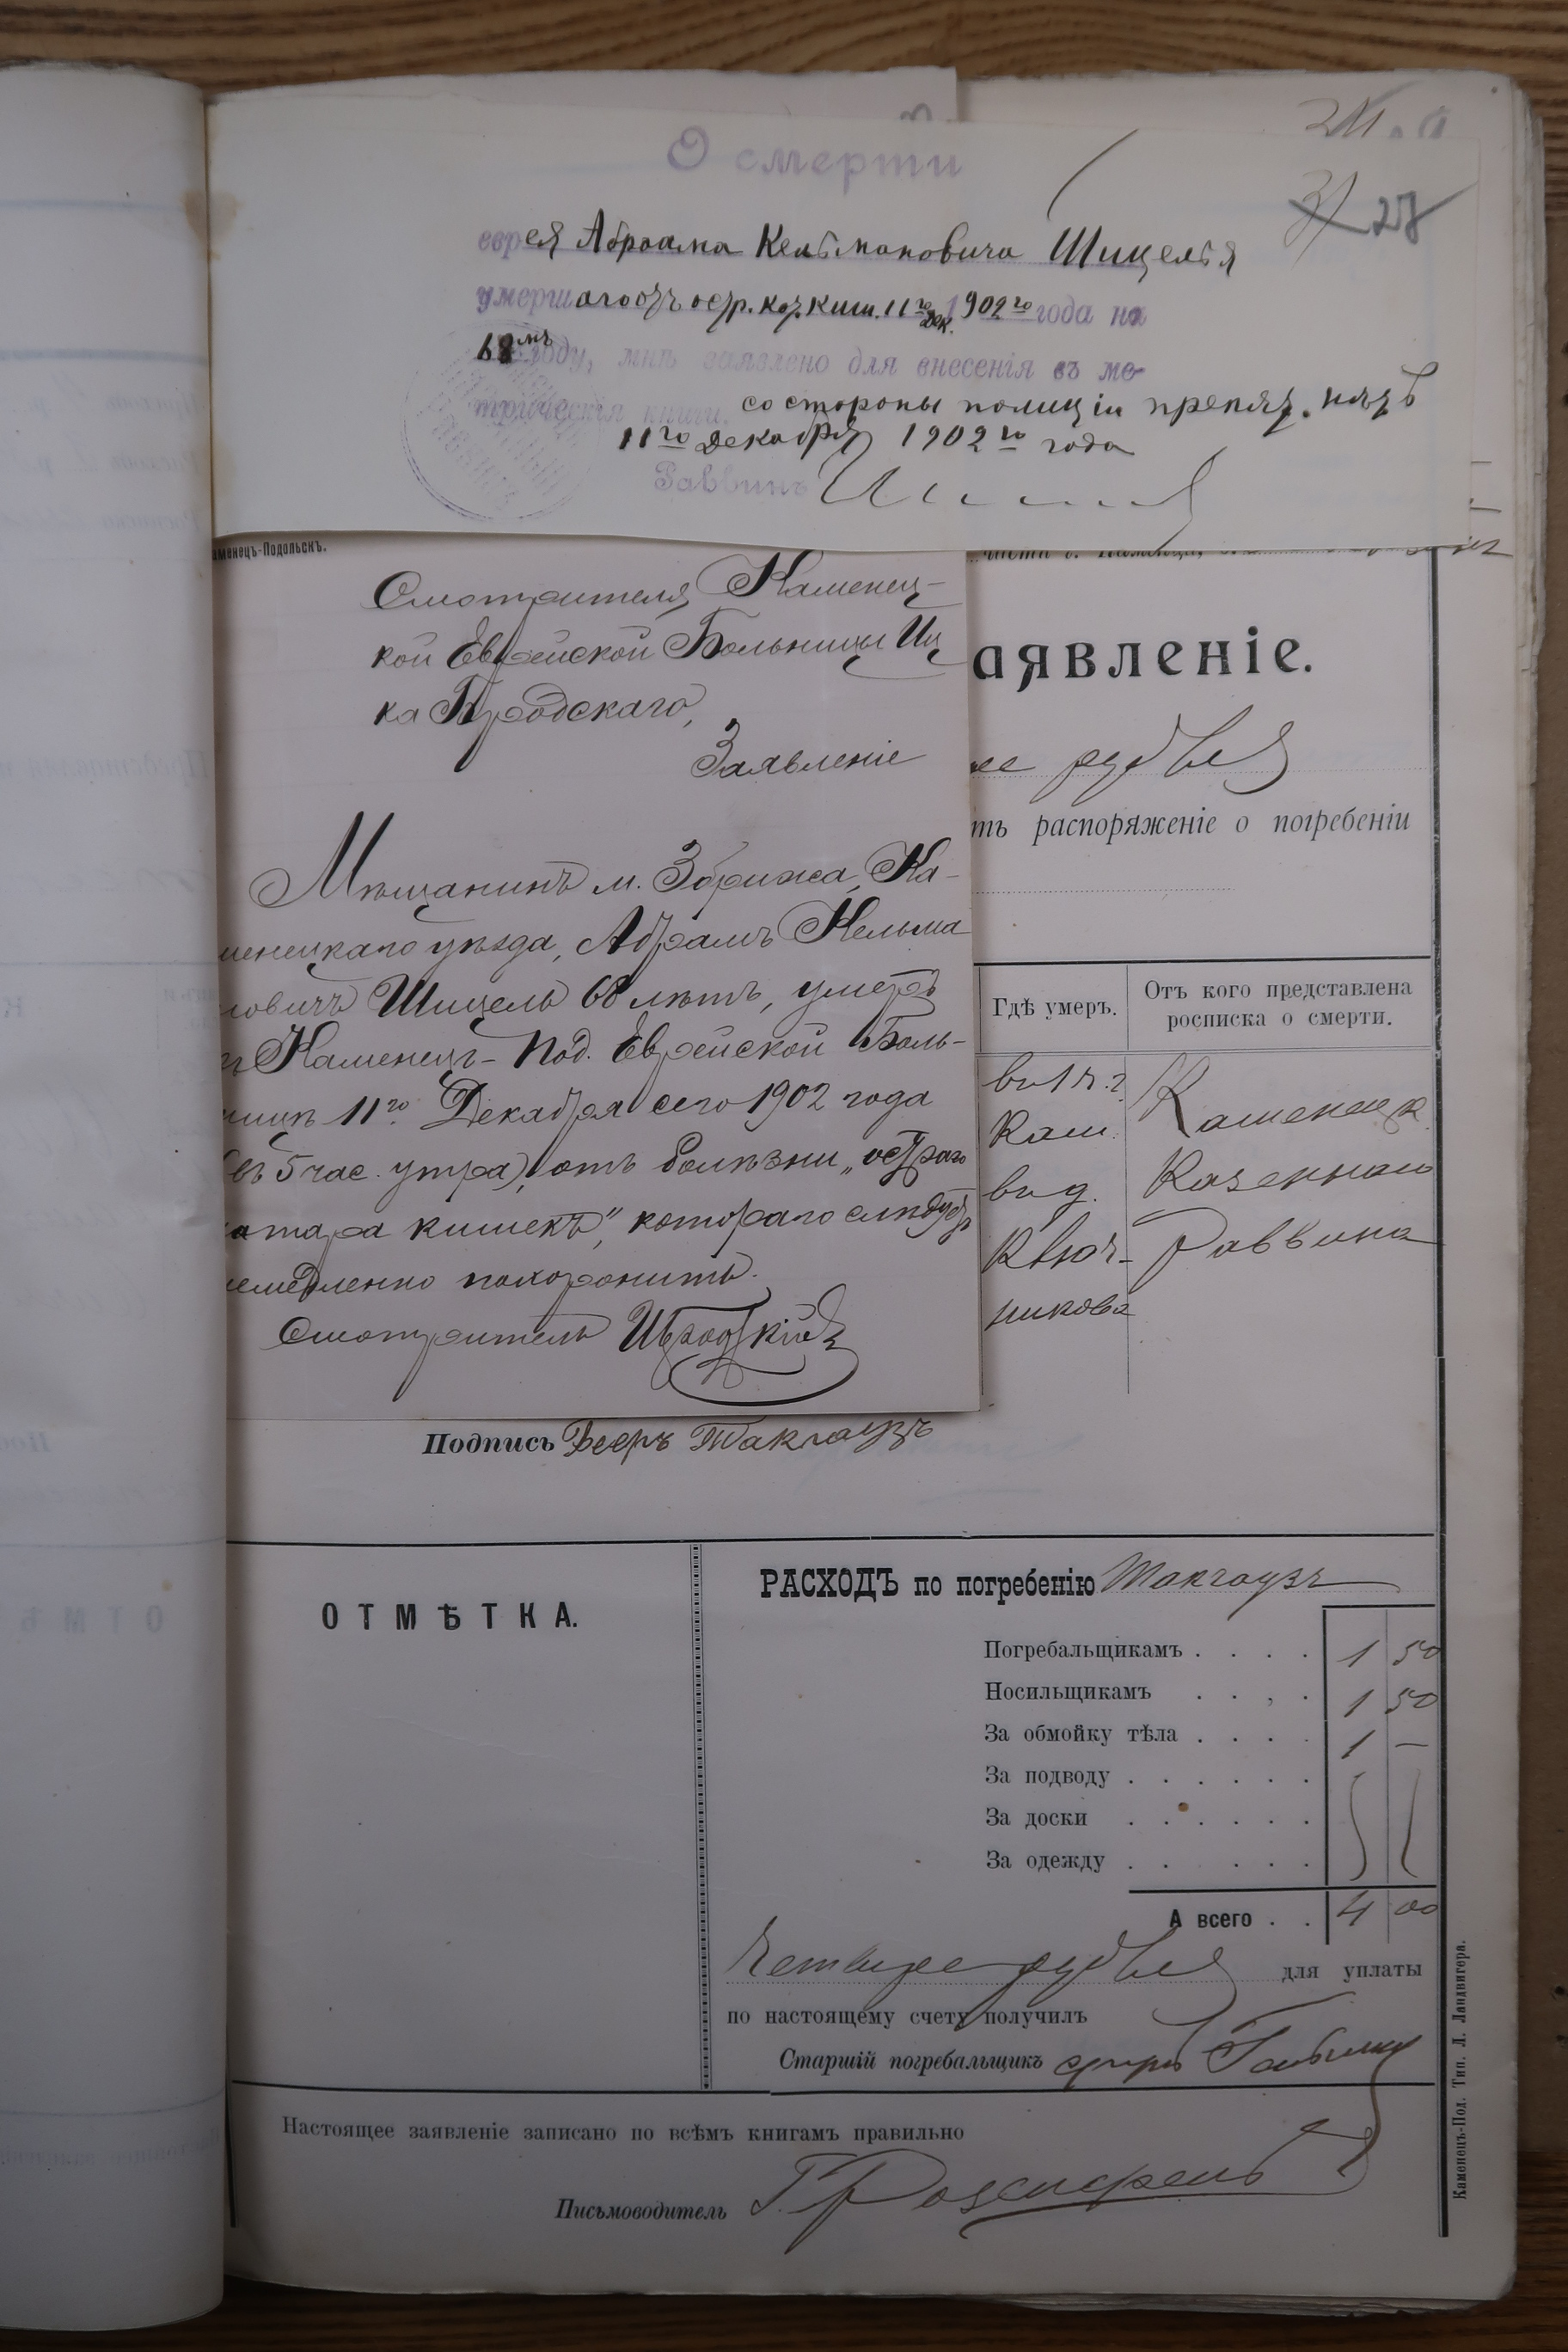 О смерти
еврея Абраама Кельмановича Шицеля
умершаго отъ остр. кат. киш. 11го дек. 1902го года на
68мъ году, мнѣ заявлено для внесенія въ ме-
трическія книги. со стороны полиціи препят. нѣтъ
11го декабря 1902го года
Раввинъ
аменецъ-Подольскъ.
Смотрителя Каменец-
кой Еврейской Больницы Иц
ка Бродскаго,
Заявленіе
Мѣщанинъ м. Збрижа, Ка-
менецкаго уѣзда, Абрамъ Кельма
новичъ Шицель 68 лѣтъ, умеръ
въ Каменец-Под. Еврейской Боль-
ницѣ 11го Декабря сего 1902 года
(въ 5 час. утра), отъ болѣзни „остраго
катара кишекъ", котораго слѣдуетъ
немедленно похоронить.
Смотритель ИБродскій
аявленіе.
ре рубля
ть распоряженіе о погребеніи
Гдѣ умеръ.
Отъ кого представлена
росписка о смерти.
Кам.
въ д.
Ключ-
никова
Каменецк.
Казеннаго
Раввина
Подпись Бееръ Такгаузъ
ОТМѢТКА.
РАСХОДЪ по погребенію Такгаузъ
Погребальщикамъ . . . . 1 50
Носильщикамъ . . . . 1 50
За обмойку тѣла . . . . 1 —
За подводу . . . . . .
За доски . . . . . .
За одежду . . . . . .
А всего . . 4 00
Четыре рубля для уплаты
по настоящему счету получилъ
Старшій погребальщикъ
Настоящее заявленіе записано по всѣмъ книгамъ правильно
Письмоводитель
Каменецъ-Под. Тип. Л. Ландвигера.